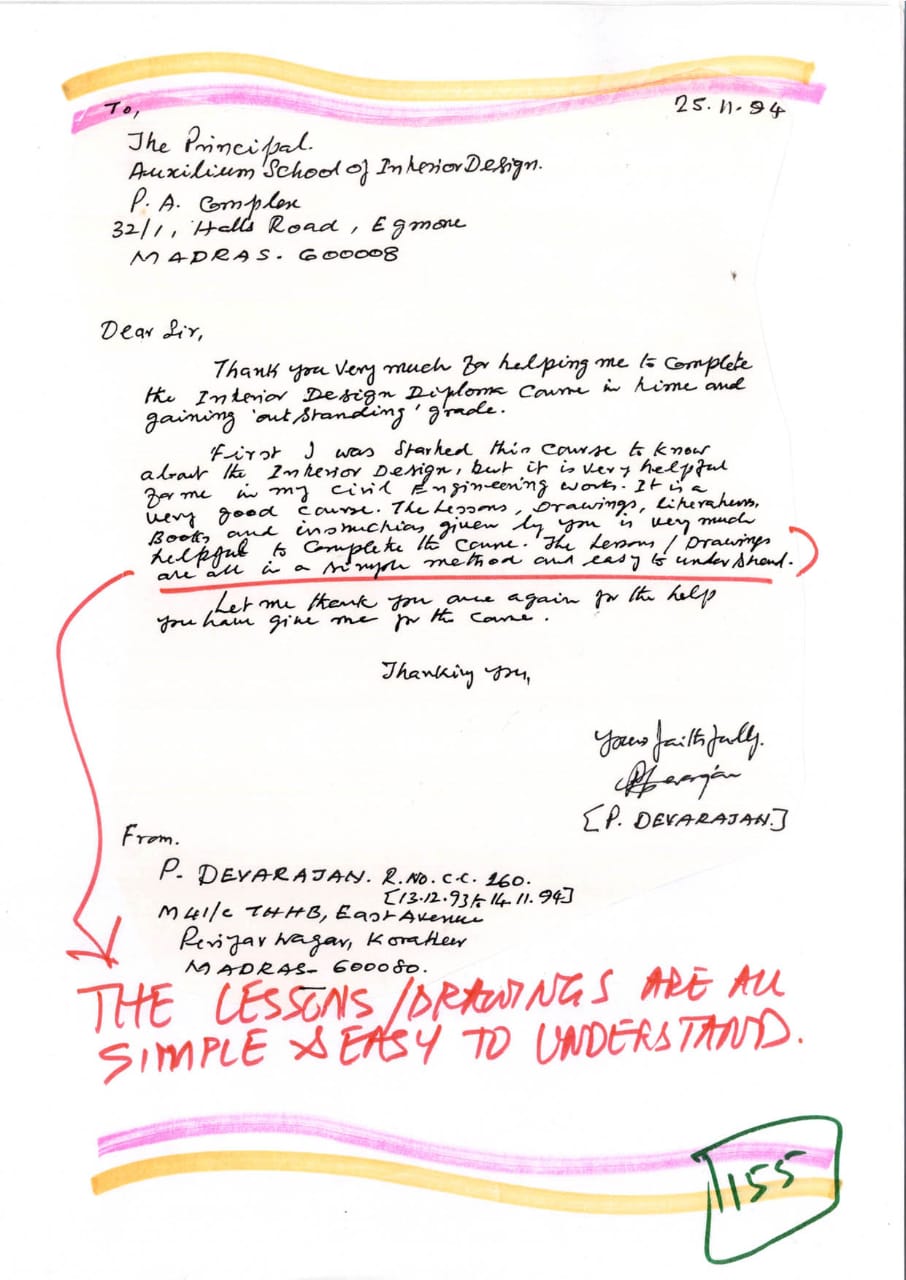 To,
25.11.94
The Principal.
Auxilium School of Interior Design.
P. A. Complex
32/1, Halls Road, Egmore
MADRAS. 600008
Dear Sir,
Thank you very much for helping me to complete
the Interior Design Diploma Course in time and
gaining 'outstanding' grade.
First I was started this course to know
about the Interior Design, but it is very helpful
for me in my civil Engineering work. It is a
very good course. The Lessons, Drawings, Literatures,
Books and instructions given by you is very much
helpful to complete the course. The Lessons / Drawings
are all in a simple method and easy to understand.
Let me thank you once again for the help
you have give me for the course.
Thanking you,
Yours faithfully.
[P. DEVARAJAN.]
From.
P. DEVARAJAN. R.NO. C.C. 260.
[13.12.93 to 14.11.94]
M 41/c TNHB, East Avenue
Periyar Nagar, Korattur
MADRAS- 600080.
THE LESSONS / DRAWINGS ARE ALL
SIMPLE & EASY TO UNDERSTAND.
1155